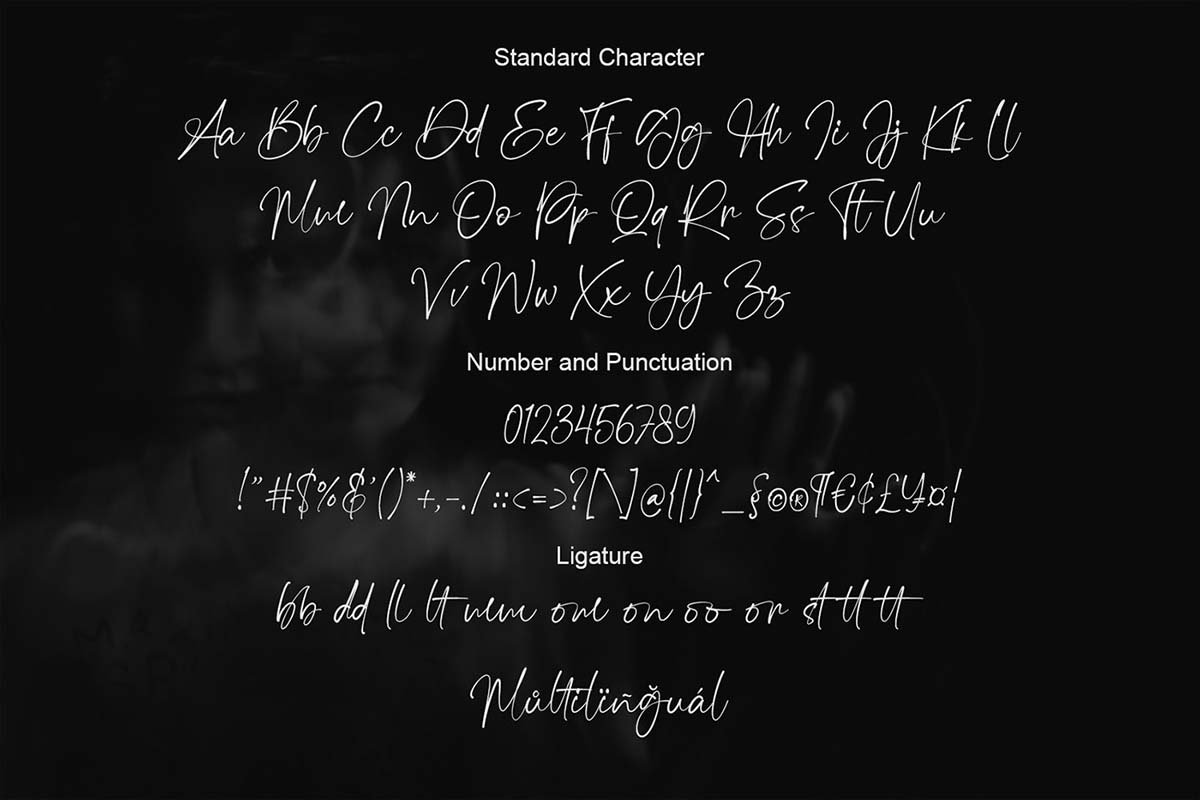 Standard Character
Aa Bb Cc Dd Ee Ff Gg Hh Ii Jj Kk Ll
Mm Nn Oo Pp Qq Rr Ss Tt Uu
Vv Ww Xx Yy Zz
Number and Punctuation
0123456789
!"#$%&'()*+,-./:;<=>?[\]@{|}^_§©®¶€¢£¥¤¡
Ligature
bb dd ll lt mm om on oo or st tl tt
Můltilïñğuál